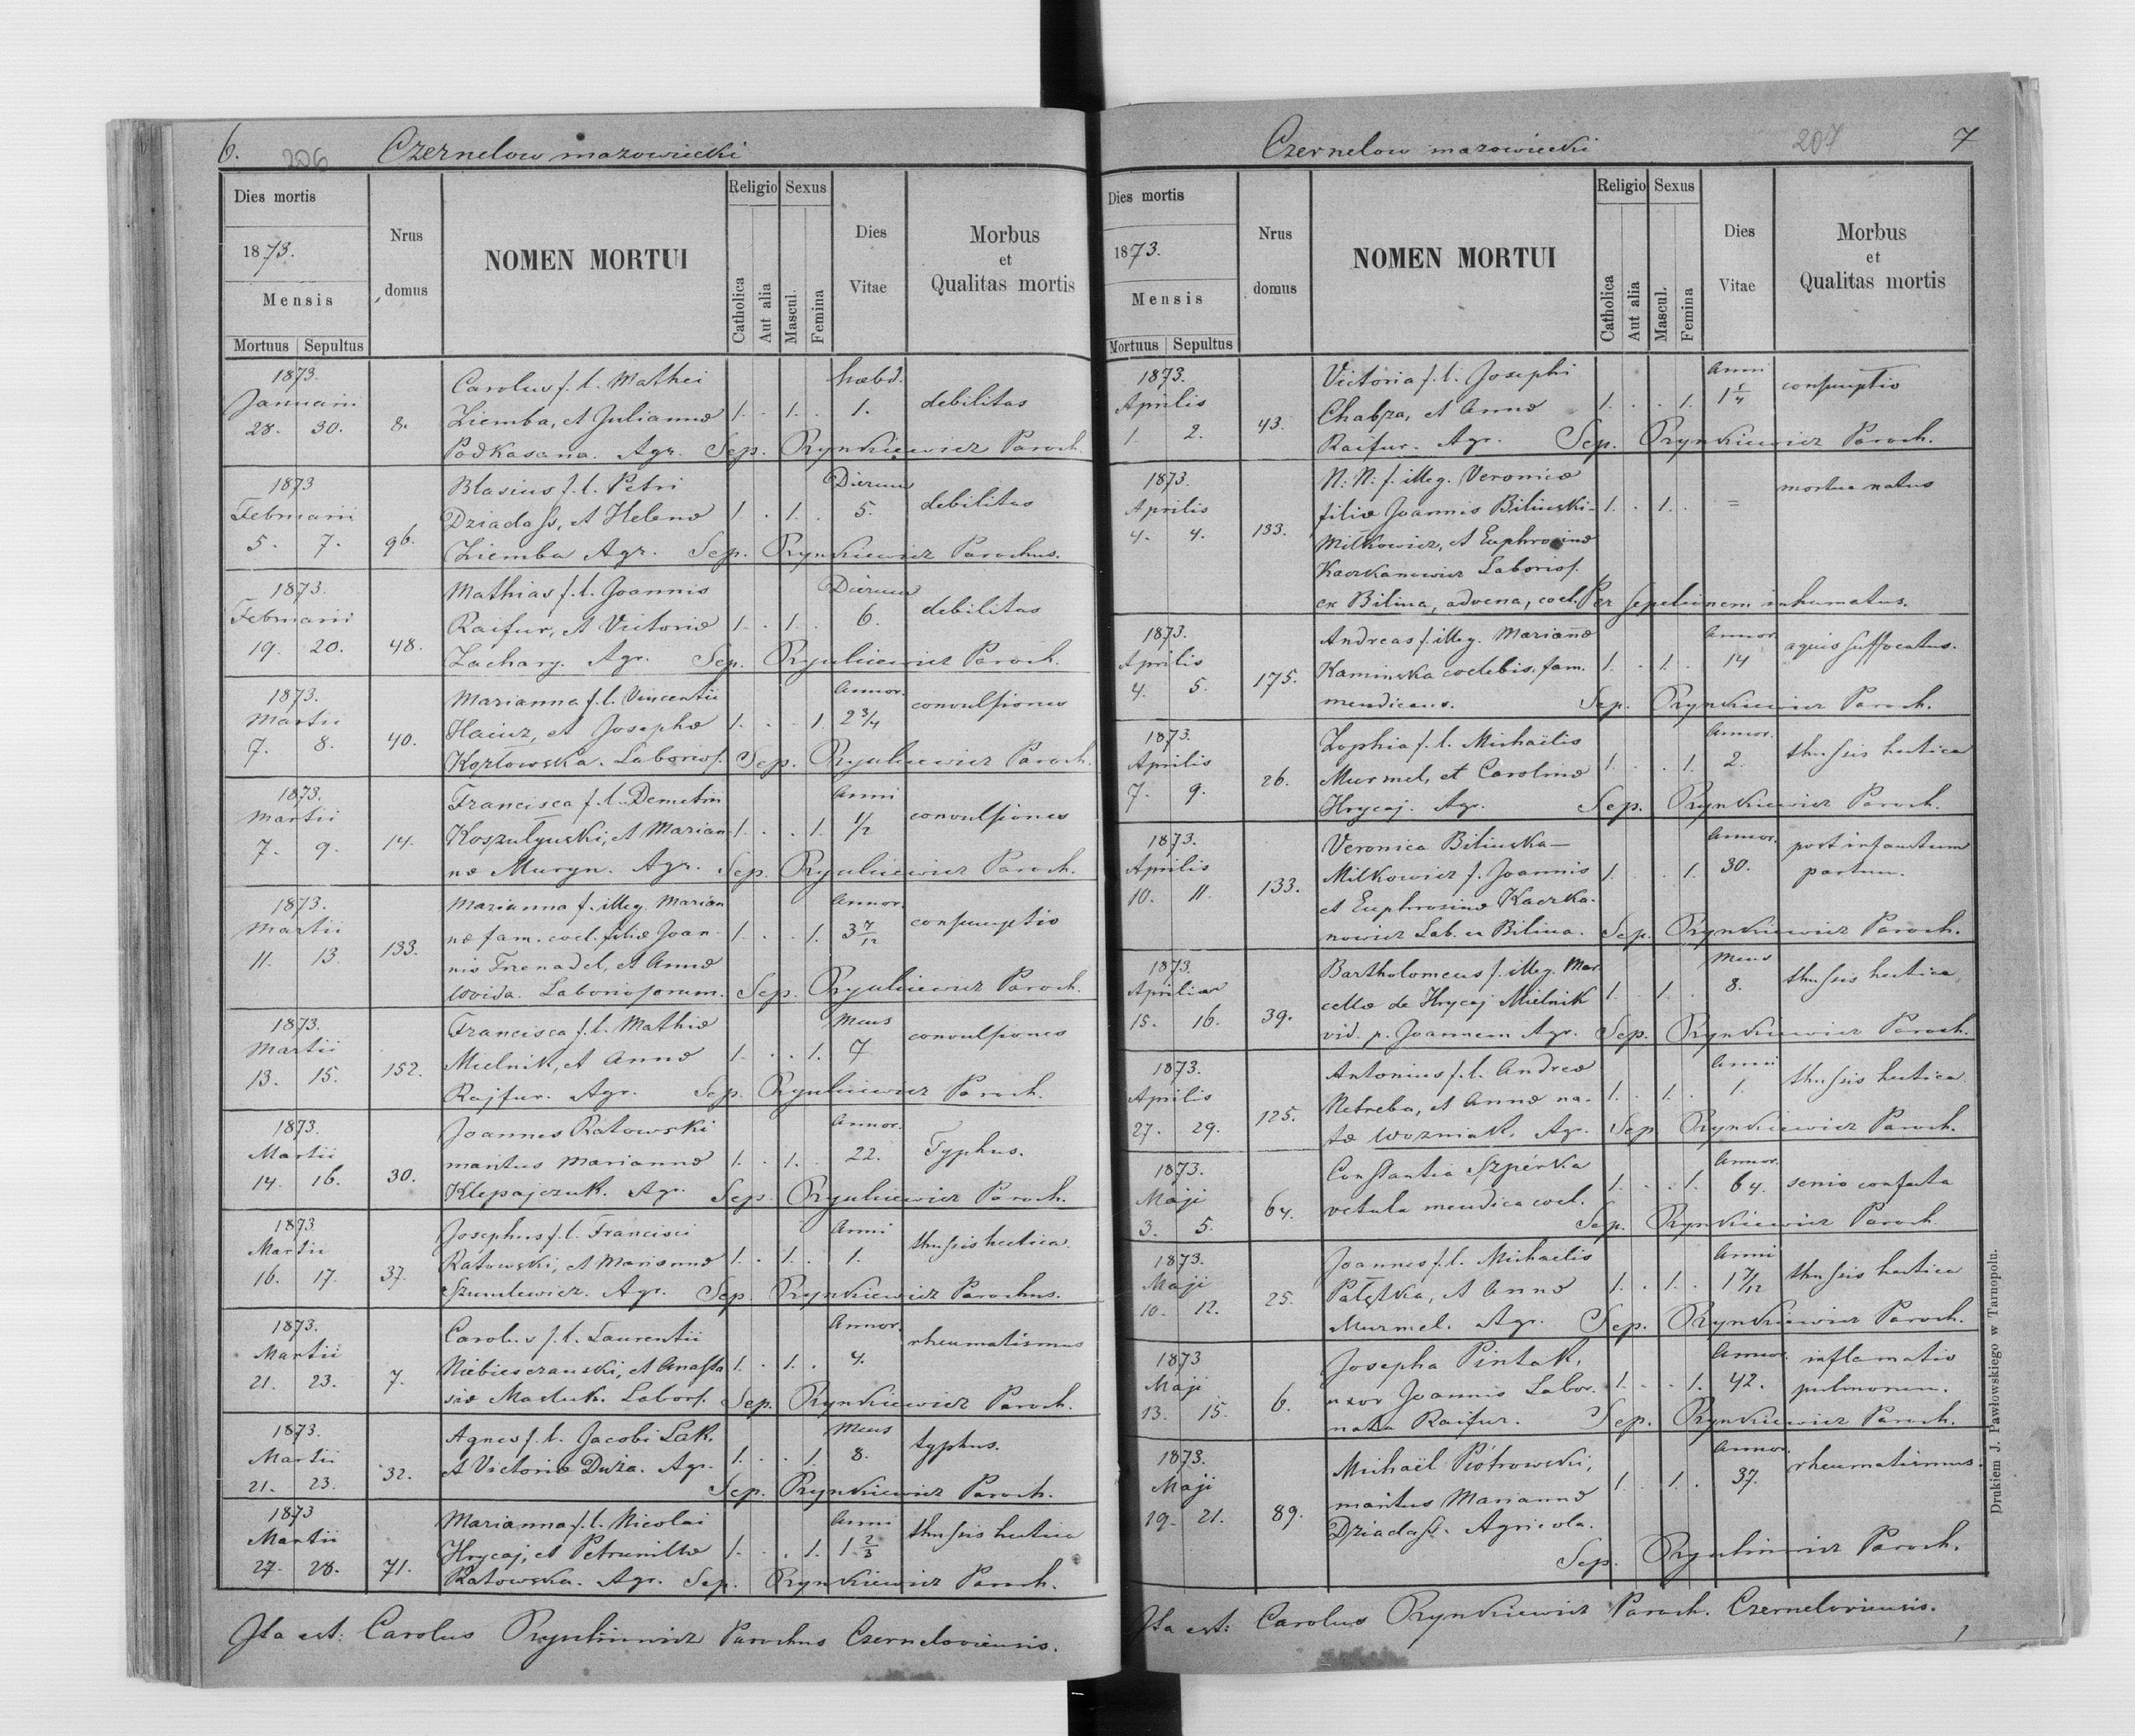 6.
206
Czernelow mazowiecki
Dies mortis
1873.
Mensis
Mortuus Sepultus
Nrus
domus
NOMEN MORTUI
Religio
Catholica
Aut alia
Sexus
Mascul.
Femina
Dies
Vitae
Morbus
et
Qualitas mortis
1873. Carolus f. l. Mathei hæbd.
Januarii Ziemba, et Juliannæ 1. . 1. . 1. debilitas
28. 30. 8. Podkasana. Agr. Sep. Rynkiewicz Paroch.
1873 Blasius f. l. Petri Dierum
Februarii Dziadass, et Helenæ 1 . 1. . 5. debilitas
5. 7. 96. Ziemba Agr. Sep. Rynkiewicz Parochus.
1873. Mathias f. l. Joannis Dierum
Februarii Raifur, et Victoriæ 1. . 1. . 6. debilitas
19. 20. 48. Zachary. Agr. Sep. Rynkiewicz Paroch.
1873. Marianna f. l. Vincentii Annor.
Martii Hainz, et Josephæ 1. . . 1. 2 3/4 convulsiones
7. 8. 40. Kozłowska. Laborios. Sep. Rynkiewicz Paroch.
1873. Francisca f. l. Demetrii Anni
Martii Koszulynski, et Marian- 1. . . 1. 1/2 convulsiones
7. 9. 14. næ Muryn. Agr. Sep. Rynkiewicz Paroch.
1873. Marianna f. illeg. Marian Annor.
Martii næ fam. coel. filiæ Joan- 1. . . 1. 3 7/12 consumptio
11. 13. 133. nis Trzenadel, et Annæ
Woida. Laboriosorum. Sep. Rynkiewicz Paroch.
1873. Francisca f. l. Mathiæ Mens
Martii Mielnik, et Annæ 1. . . 1. 7 convulsiones
13. 15. 152. Rajfur. Agr. Sep. Rynkiewicz Paroch.
1873. Joannes Ratowski Annor.
Martii maritus Mariannæ 1. . 1. . 22. Typhus.
14. 16. 30. Klepajczuk. Agr. Sep. Rynkiewicz Paroch.
1873 Josephus f. l. Francisci Anni
Martii Ratowski, et Mariannæ 1. . 1. . 1. thussis hectica.
16. 17. 37. Szumlewicz. Agr. Sep. Rynkiewicz Parochus.
1873. Carolus f. l. Laurentii Annor. rheumatismus
Martii Niebieszczanski, et Anasta 1. . 1. . 4.
21. 23. 7. siæ Labors. Sep. Rynkiewicz Paroch.
1873. Agnes f. l. Jacobi Łak, Mens
Martii et Victoriæ Duża. Agr. 1. . . 1. 8. typhus.
21. 23. 32. Sep. Rynkiewicz Paroch.
1873 Marianna f. l. Nicolai Anni
Martii Hrycaj, et Petrunillæ 1. . . 1. 1 2/3 thussis hectica
27. 28. 71. Ratowska. Agr. Sep. Rynkiewicz Paroch.
Ita est: Carolus Rynkiewicz Parochus Czerneloviensis.
Czernelow mazowiecki
207
7
Dies mortis
1873.
Mensis
Mortuus Sepultus
Nrus
domus
NOMEN MORTUI
Religio
Catholica
Aut alia
Sexus
Mascul.
Femina
Dies
Vitae
Morbus
et
Qualitas mortis
1873. Victoria f. l. Josephi Anni
Aprilis Chabza, et Annæ 1. . . 1. 1 1/4 consumptio
1. 2. 43. Raifur. Agr. Sep. Rynkiewicz Paroch.
1873. N. N. f. illeg. Veronicæ mortuo natus
Aprilis filiæ Joannis Bilinski- 1. . 1. . =
4. 4. 133. Milkowicz, et Euphrosinæ
Kaczkanowicz Laborios.
ex Bilina, advena, coel. Per sepelionem inhumatus.
1873. Andreas f. illeg. Mariannæ Annor. aquis suffocatus.
Aprilis Kaminska coelebis. fam. 1. . 1. . 14
4. 5. 175. mendicans. Sep. Rynkiewicz Paroch.
1873. Zophia f. l. Michaëlis Annor.
Aprilis Murmel, et Carolinæ 1. . . 1. 2. thussis hectica
7. 9. 26. Hrycaj. Agr. Sep. Rynkiewicz Paroch.
1873. Veronica Bilinska- Annor. post infaustum
Aprilis Milkowicz f. Joannis 1. . . 1. 30. partum.
10. 11. 133. et Euphrosinæ Kaczka-
nowicz Lab. ex Bilina. Sep. Rynkiewicz Paroch.
1873. Bartholomeus f. illeg. Mar Mens
Aprilis cellæ de Hrycaj Mielnik 1. . 1. . 8. thussis hectica
15. 16. 39. vid. p. Joannem Agr. Sep. Rynkiewicz Paroch.
1873. Antonius f. l. Andreæ Anni
Aprilis Netreba, et Annæ na- 1. . 1. . 1. thussis hectica
27. 29. 125. tæ Wozniak. Agr. Sep Rynkiewicz Paroch.
1873. Constantia Szpérka Annor.
Maji vetula mendica coel. 1. . . 1. 64. senio confecta
3. 5. 64. Sep. Rynkiewicz Paroch
1873. Joannes f. l. Michaelis Anni
Maji Pałętka, et Annæ 1. . 1. . 1 7/12 thussis hectica
10. 12. 25. Murmel. Agr. Sep. Rynkiewicz Paroch.
1873 Josepha Pintak, Annor. inflamatio
Maji uxor Joannis Labor. 1. . . 1. 42. pulmonum.
13. 15. 6. nata Raifur. Sep. Rynkiewicz Paroch.
1873. Michaël Piotrowski, Annor. rheumatismus.
Maji maritus Mariannæ 1. . 1. . 37.
19. 21. 89. Dziadass. Agricola.
Sep. Rynkiewicz Paroch.
Ita est: Carolus Rynkiewicz Paroch. Czerneloviensis.
Drukiem J. Pawłowskiego w Tarnopolu.